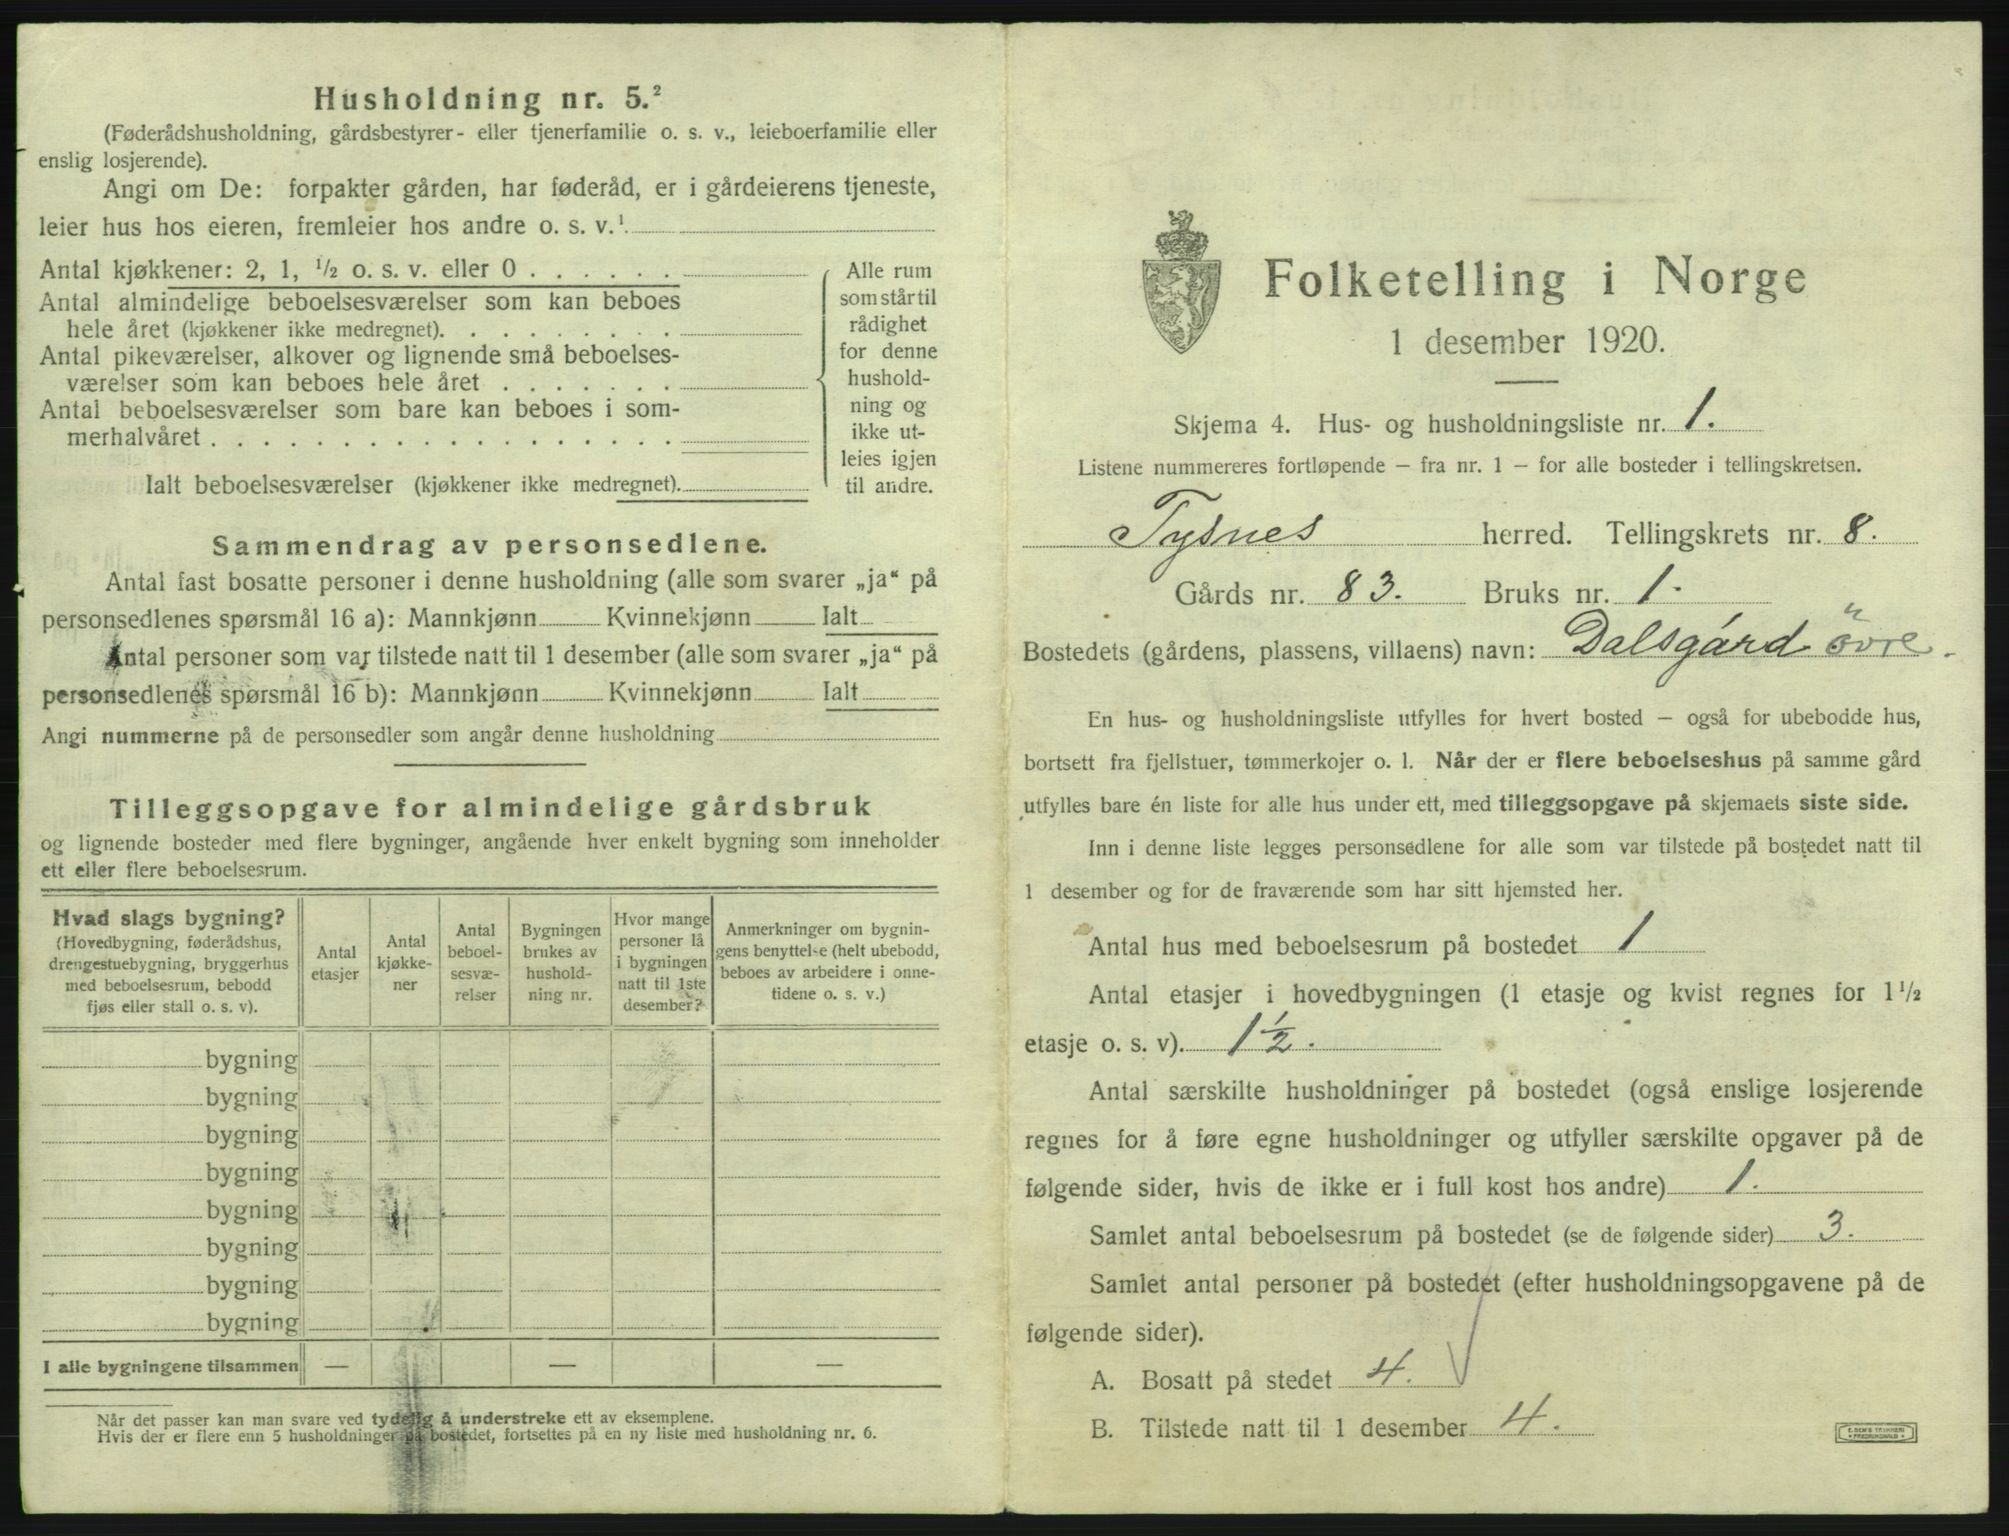 Husholdning nr. 5.²
(Føderådshusholdning, gårdsbestyrer- eller tjenerfamilie o. s. v., leieboerfamilie eller
enslig losjerende).
Angi om De: forpakter gården, har føderåd, er i gårdeierens tjeneste,
leier hus hos eieren, fremleier hos andre o. s. v.¹
Antal kjøkkener: 2, 1, ½ o. s. v. eller 0 . . . . . .
Antal almindelige beboelsesværelser som kan beboes
hele året (kjøkkener ikke medregnet). . . . . . . . .
Antal pikeværelser, alkover og lignende små beboelses-
værelser som kan beboes hele året . . . . . . .
Antal beboelsesværelser som bare kan beboes i som-
merhalvåret . . . . . . . . . . . . . . . . . .
Ialt beboelsesværelser (kjøkkener ikke medregnet).
Alle rum
som står til
rådighet
for denne
hushold-
ning og
ikke ut-
leies igjen
til andre.
Sammendrag av personsedlene.
Antal fast bosatte personer i denne husholdning (alle som svarer „ja“ på
personsedlenes spørsmål 16 a): Mannkjønn Kvinnekjønn Ialt
Antal personer som var tilstede natt til 1 desember (alle som svarer „ja“ på
personsedlenes spørsmål 16 b): Mannkjønn Kvinnekjønn Ialt
Angi nummerne på de personsedler som angår denne husholdning
Tilleggsopgave for almindelige gårdsbruk
og lignende bosteder med flere bygninger, angående hver enkelt bygning som inneholder
ett eller flere beboelsesrum.
Hvad slags bygning?
(Hovedbygning, føderådshus,
drengestuebygning, bryggerhus
med beboelsesrum, bebodd
fjøs eller stall o. s. v).
Antal
etasjer
Antal
kjøkke-
ner
Antal
beboel-
sesvæ-
relser
Bygningen
brukes av
hushold-
ning nr.
Hvor mange
personer lå
i bygningen
natt til 1ste
desember?
Anmerkninger om bygnin-
gens benyttelse (helt ubebodd,
beboes av arbeidere i onne-
tidene o. s. v.)
bygning
bygning
bygning
bygning
bygning
bygning
bygning
bygning
I alle bygningene tilsammen — — —
Når det passer kan man svare ved tydelig å understreke ett av eksemplene.
Hvis der er flere enn 5 husholdninger på bostedet, fortsettes på en ny liste med husholdning nr. 6.
Folketelling i Norge
1 desember 1920.
Skjema 4. Hus- og husholdningsliste nr. 1.
Listene nummereres fortløpende – fra nr. 1 – for alle bosteder i tellingskretsen.
Tysnes herred. Tellingskrets nr. 8.
Gårds nr. 83. Bruks nr. 1.
Bostedets (gårdens, plassens, villaens) navn: Dalsgård övre.
En hus- og husholdningsliste utfylles for hvert bosted – også for ubebodde hus,
bortsett fra fjellstuer, tømmerkojer o. l. Når der er flere beboelseshus på samme gård
utfylles bare én liste for alle hus under ett, med tilleggsopgave på skjemaets siste side.
Inn i denne liste legges personsedlene for alle som var tilstede på bostedet natt til
1 desember og for de fraværende som har sitt hjemsted her.
Antal hus med beboelsesrum på bostedet 1
Antal etasjer i hovedbygningen (1 etasje og kvist regnes for 1½
etasje o. s. v). 1½.
Antal særskilte husholdninger på bostedet (også enslige losjerende
regnes for å føre egne husholdninger og utfyller særskilte opgaver på de
følgende sider, hvis de ikke er i full kost hos andre) 1.
Samlet antal beboelsesrum på bostedet (se de følgende sider) 3.
Samlet antal personer på bostedet (efter husholdningsopgavene på de
følgende sider).
A. Bosatt på stedet 4.
B. Tilstede natt til 1 desember 4.